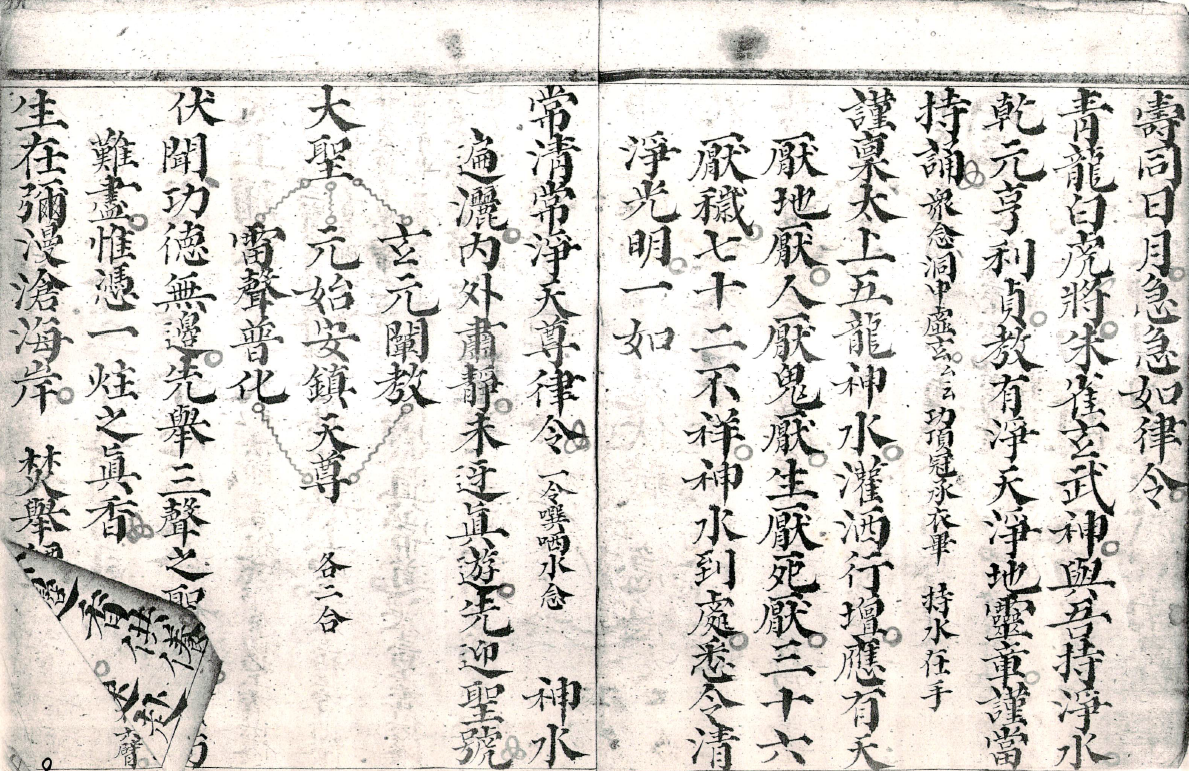 壽同日月急急如律令
青龍白虎將朱雀玄武神與吾持淨水
乾元亨利貞教有淨天淨地靈童謹當
持誦 衆念洞中虛玄厶云 功項冠永衣畢 持水在手
謹稟太上五龍神水灌洒行壇應有天
厭地厭人厭鬼厭生厭死厭三十六
厭穢七十二不祥神水到處悉令清
淨光明一如
常清常淨天尊律令 一令噀哂水念 神水
遍灑內外肅靜未迓眞遊先迎聖號
玄元闡教
大聖 元始安鎮天尊 各二台
雷聲普化
伏聞功德無邊先舉三聲之聖
難盡惟憑一炷之眞香
生在彌漫滄海岸 焚舉